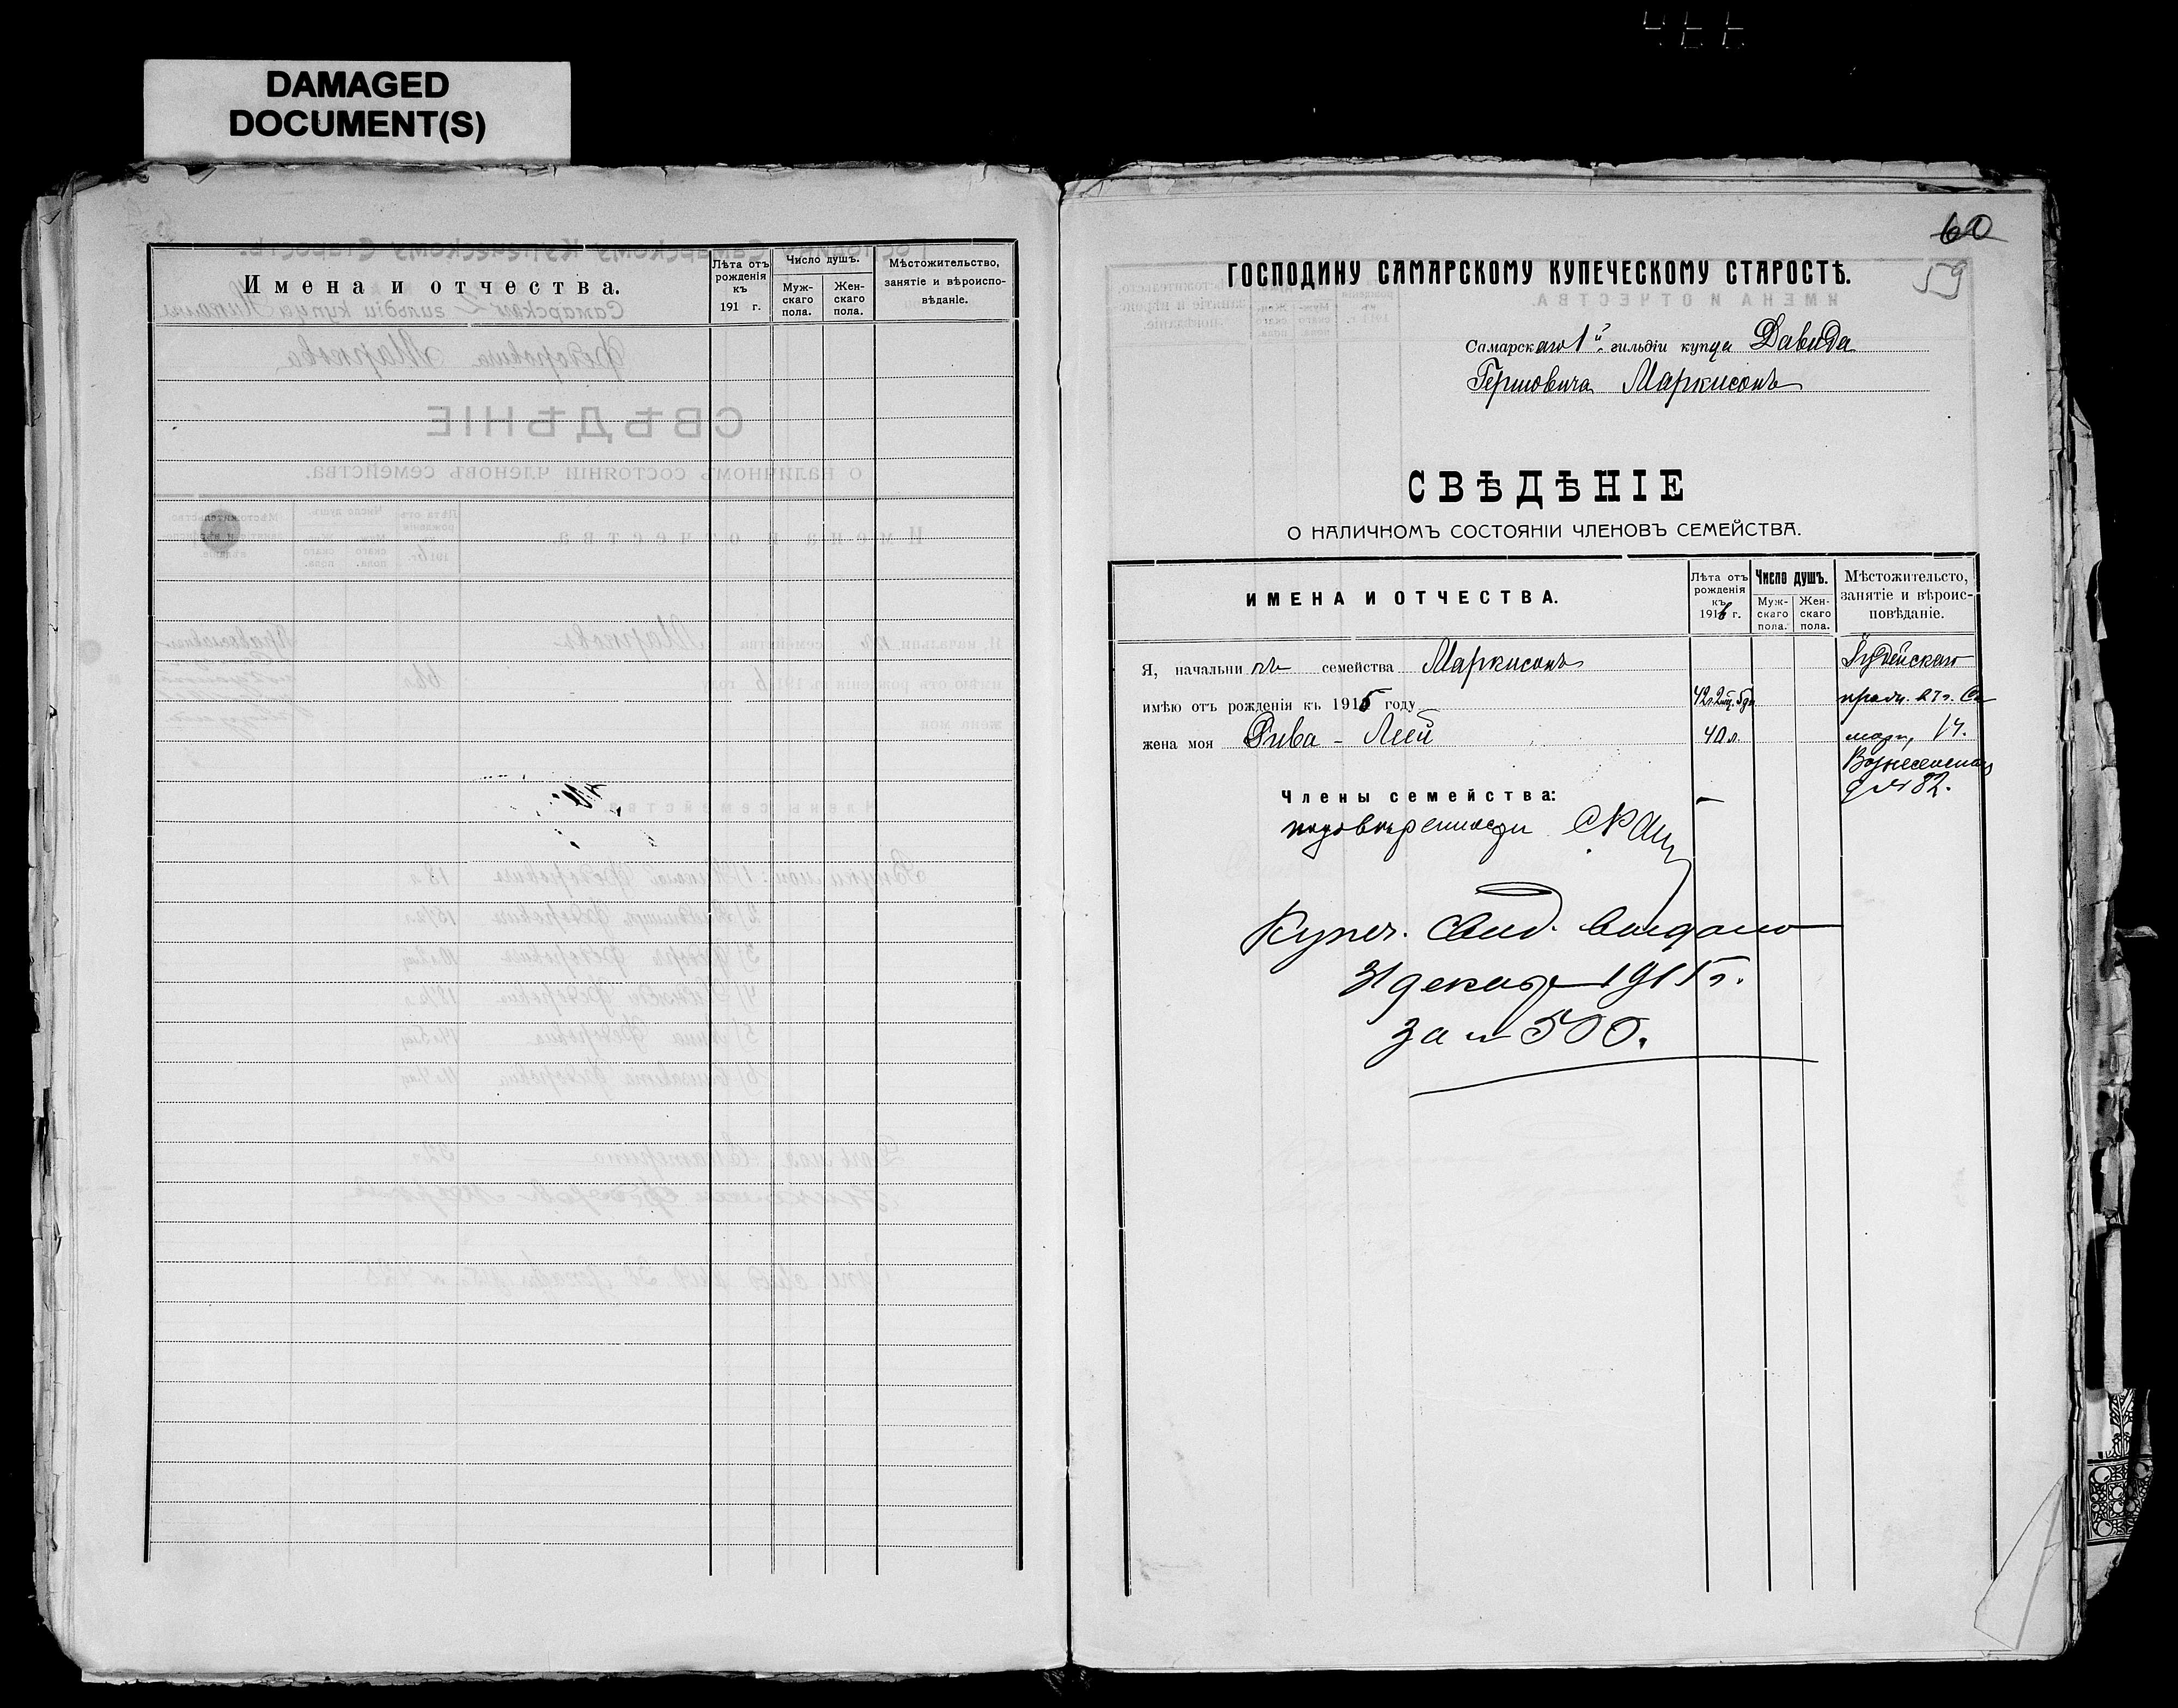 DAMAGED
DOCUMENT(S)
Имена и отчества.
Лѣта отъ рожденія къ 191 г.
Число душъ.
Муж-скаго пола.
Жен-скаго пола.
Мѣстожительство, занятіе и вѣроиспо-вѣданіе.
60
59
ГОСПОДИНУ САМАРСКОМУ КУПЕЧЕСКОМУ СТАРОСТѢ.
Самарскаго 1й гильдіи купца Давида
Гершовича Маркисонъ
СВѢДѢНІЕ
О НАЛИЧНОМЪ СОСТОЯНІИ ЧЛЕНОВЪ СЕМЕЙСТВА.
ИМЕНА И ОТЧЕСТВА.
Лѣта отъ рожденія къ 1916 г.
Число душъ.
Муж-скаго пола.
Жен-скаго пола.
Мѣстожительсто, занятіе и вѣроис-повѣданіе.
Я, начальникъ семейства Маркисонъ Іудейскаго
имѣю отъ рожденія къ 1915 году 42 г. 2 м.
жена моя Рива - Лея 40 л.
Вознесенская
д № 82.
Члены семейства: —
по довѣренности
Купеч. Свид. выдано
31 декабр 1915 г.
за № 500.